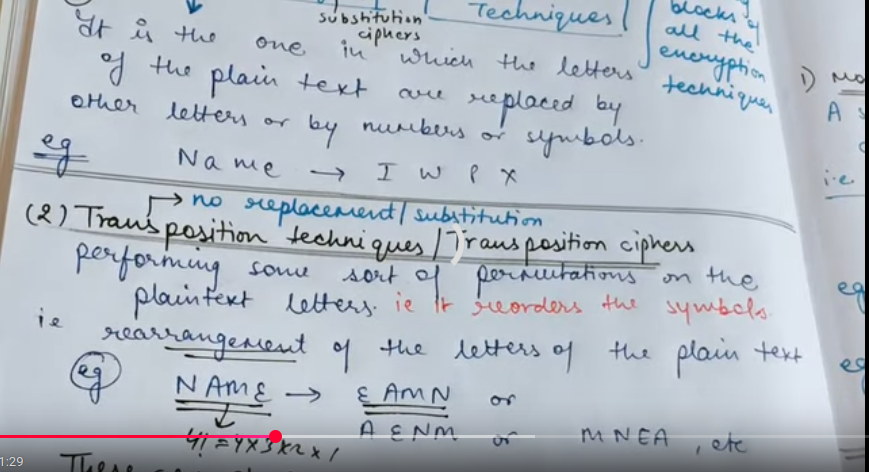 substitution ciphers
Techniques
blocks of
all the
encryption
techniques
It is the one in which the letters
of the plain text are replaced by
other letters or by numbers or symbols.
eg Name → I W P X
→ no replacement/substitution
(2) Transposition techniques/Transposition ciphers
performing some sort of permutations on the
plaintext letters. ie it reorders the symbols.
ie rearrangement of the letters of the plain text
eg NAME → EAMN or
4! = 4x3x2x1 AENM or MNEA, etc
1)
A
i.e.
eg
eg
1:29